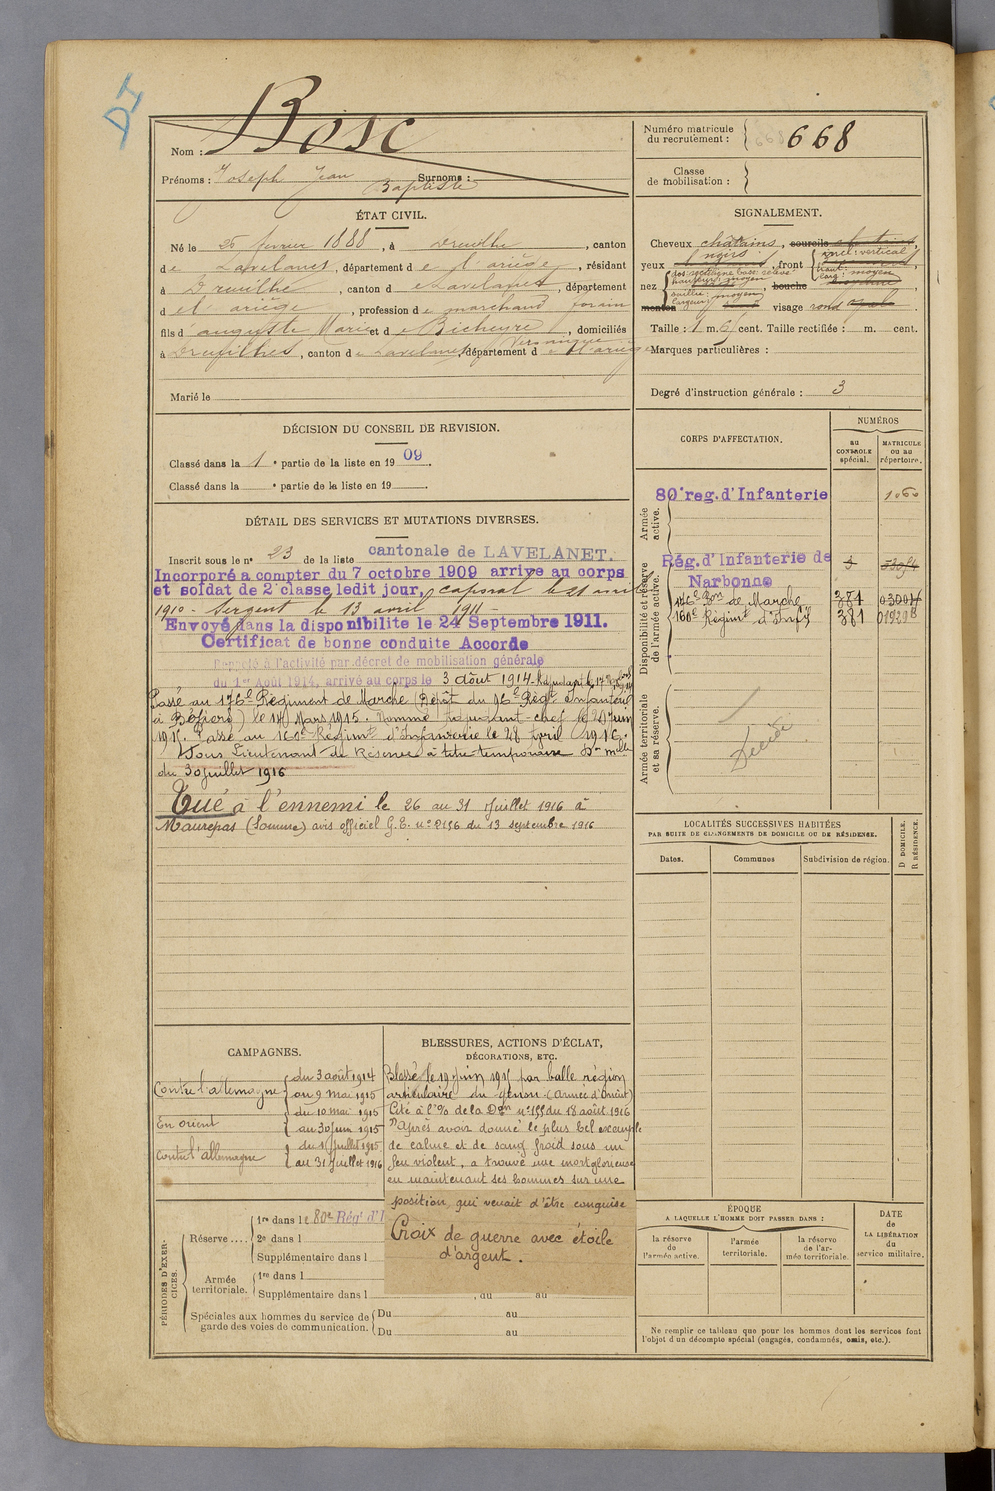 DI
Nom : Bosc
Prénoms : Joseph Jean Baptiste Surnoms :
Numéro matricule du recrutement : 668 668
Classe de mobilisation :
ÉTAT CIVIL.
Né le 25 février 1888, à Dreuilhe, canton
de Lavelanet, département de l'ariège, résidant
à Dreuilhe, canton de Lavelanet, département
de l'ariège, profession de marchand forain
fils d'auguste Marie et de Bicheyre Véronique, domiciliés
à Dreuilhes, canton de Lavelanet, département de l'ariège
Marié le
SIGNALEMENT.
Cheveux châtains, sourcils châtains,
yeux noirs, front incl: vertical haut: larg: moyen
nez dos: rectiligne base: relevé hauteur: moyen saillie: moyen largeur:, bouche moyenne,
menton visage rond ovale
Taille : 1 m. 61 cent. Taille rectifiée : m. cent.
Marques particulières :
Degré d'instruction générale : 3
DÉCISION DU CONSEIL DE REVISION.
Classé dans la 1e partie de la liste en 1909.
Classé dans la e partie de la liste en 19
DÉTAIL DES SERVICES ET MUTATIONS DIVERSES.
Inscrit sous le n° 23 de la liste cantonale de LAVELANET.
Incorporé a compter du 7 octobre 1909 arrive au corps
et soldat de 2e classe ledit jour, caporal le 21 avril
1910 - Sergent le 13 avril 1911 -
Envoyé dans la disponibilite le 24 Septembre 1911.
Certificat de bonne conduite Accorde
Rappelé à l'activité par décret de mobilisation générale
du 1er Août 1914, arrivé au corps le 3 août 1914 - Adjudant le 17
Passé au 176e Régiment de Marche (Dépôt du 96e Régt Infanterie
à Béziers) le 14 Mars 1915. Nommé Adjudant-chef le 21 Juin
1915. Passé au 160e Régiment d'Infanterie le 28 Avril 1916.
Sous Lieutenant de Réserve à titre temporaire Don mlle
du 30 juillet 1916
Tué à l'ennemi le 26 au 31 Juillet 1916 à
Maurepas (Somme) avis officiel G.E. n° 2136 du 13 septembre 1916
CORPS D'AFFECTATION.
NUMÉROS
au CONTROLE spécial.
MATRICULE ou au répertoire.
Armée active.
80e reg. d'Infanterie 1060
Disponibilité et réserve de l'armée active.
Rég. d'Infanterie de Narbonne
176e Bon de Marche 374 03007
160e Régimt d'Infie 381 019298
Armée territoriale et sa réserve.
Décédé
LOCALITÉS SUCCESSIVES HABITÉES
PAR SUITE DE CHANGEMENTS DE DOMICILE OU DE RÉSIDENCE.
Dates.
Communes
Subdivision de région.
D DOMICILE.
R RÉSIDENCE.
CAMPAGNES.
Contre l'allemagne du 3 août 1914
au 9 mai 1915
En orient du 10 mai 1915
au 30 juin 1915
Contre l'allemagne du 1 Juillet 1915
au 31 Juillet 1916
BLESSURES, ACTIONS D'ÉCLAT,
DÉCORATIONS, ETC.
Blessé le 19 juin 1915 par balle région
articulaire du genou (armée d'orient)
Cité à l'O/ de la Don n° 155 du 18 août 1916
"Après avoir donné le plus bel exemple
de calme et de sang froid sous un
feu violent, a trouvé une mort glorieuse
en maintenant ses hommes sur une
position, qui venait d'être conquise
Croix de guerre avec étoile
d'argent.
PÉRIODES D'EXERCICES.
Réserve....
1re dans le 80e Rég. d'I
2e dans l
Supplémentaire dans l
Armée territoriale.
1re dans l
Supplémentaire dans l , du au
Spéciales aux hommes du service de garde des voies de communication.
Du au
Du au
ÉPOQUE
A LAQUELLE L'HOMME DOIT PASSER DANS :
la réserve de l'armée active.
l'armée territoriale.
la réserve de l'armée territoriale.
DATE de LA LIBÉRATION du service militaire.
Ne remplir ce tableau que pour les hommes dont les services font
l'objet d'un décompte spécial (engagés, condamnés, omis, etc.).